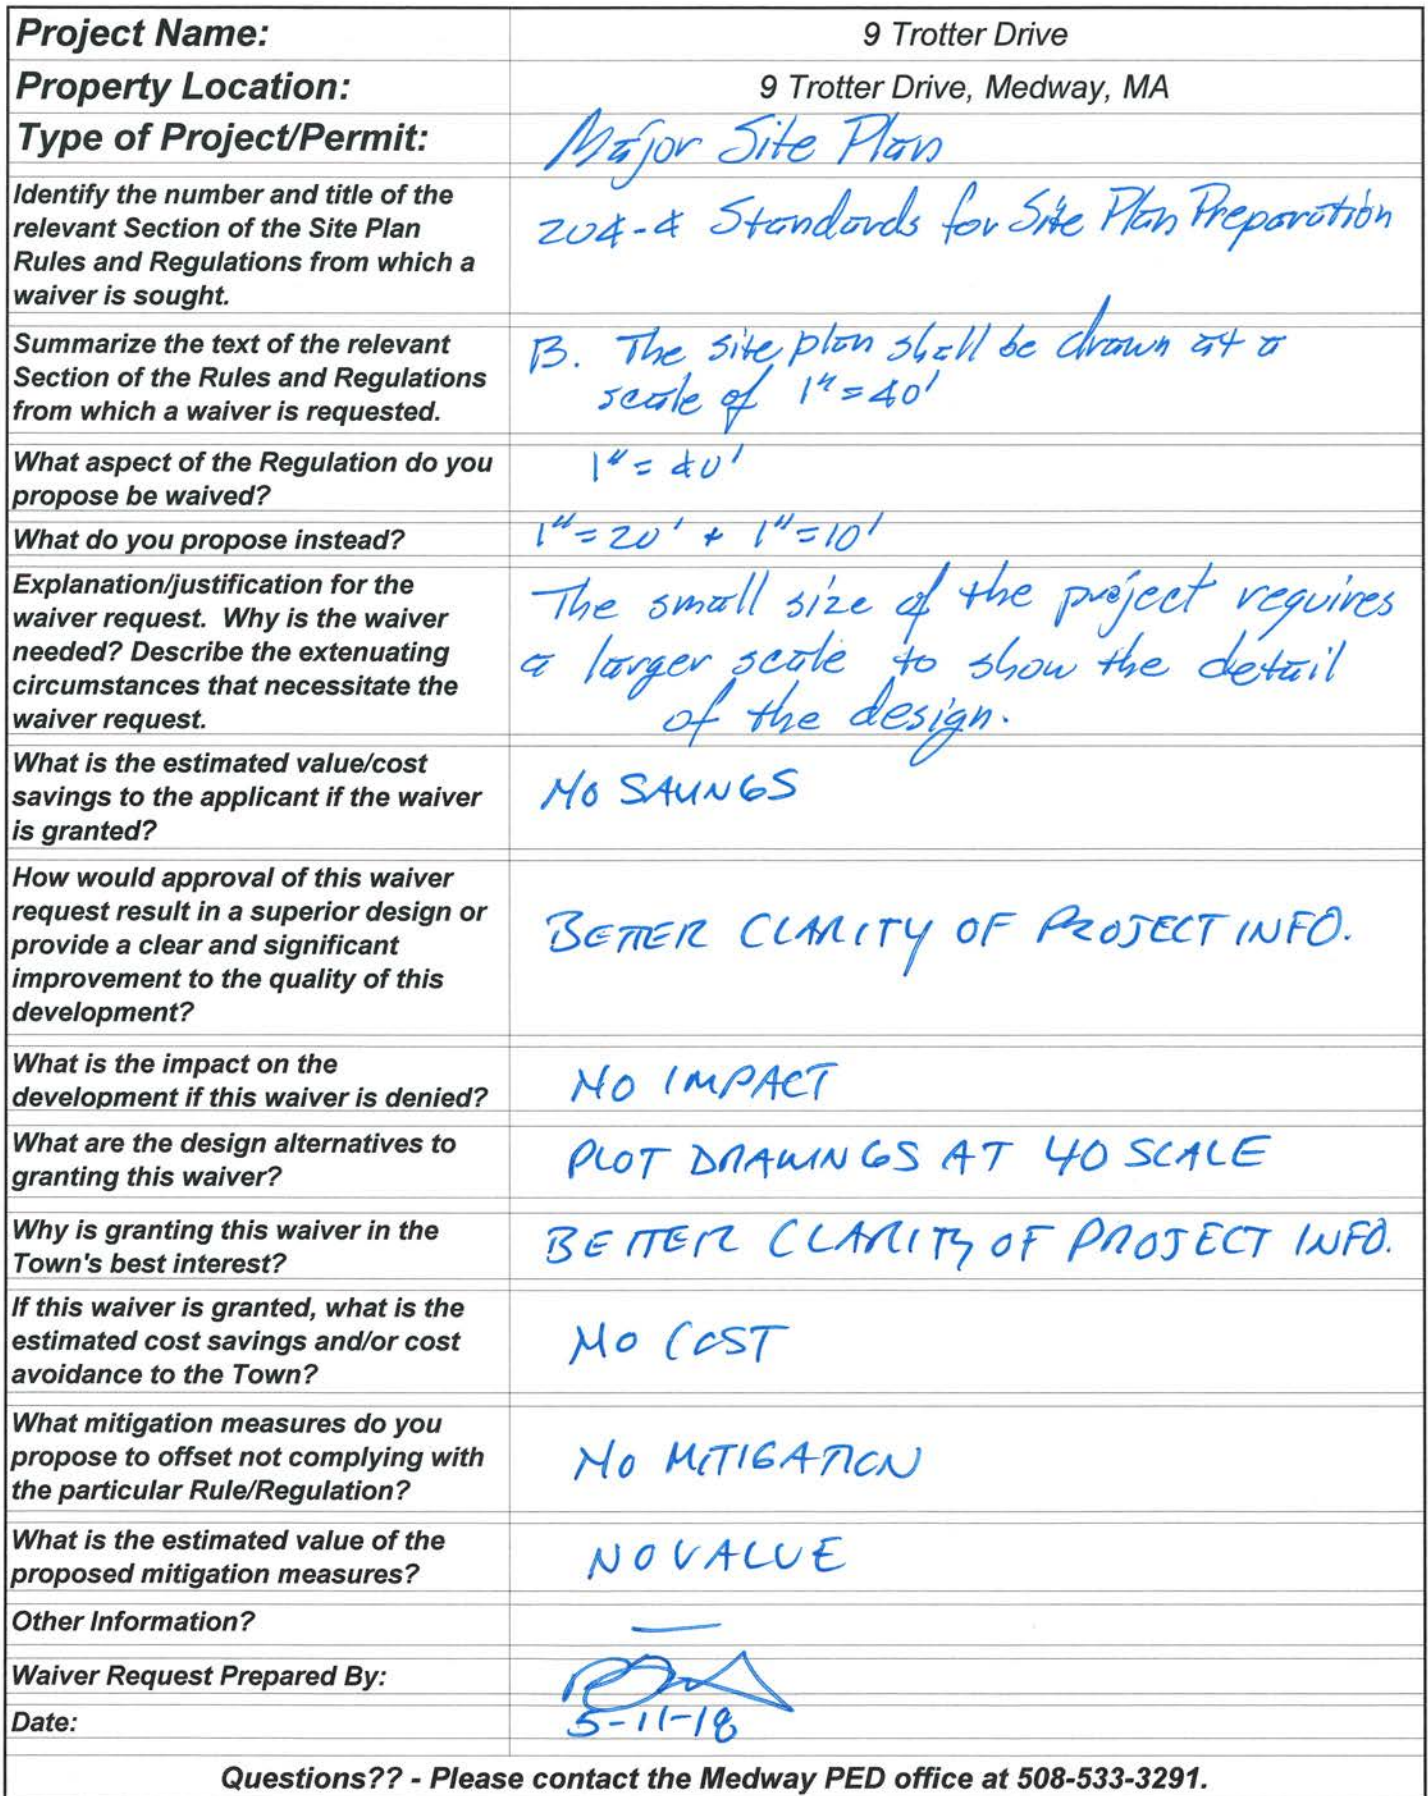 Project Name: 9 Trotter Drive
Property Location: 9 Trotter Drive, Medway, MA
Type of Project/Permit: Major Site Plan
Identify the number and title of the
relevant Section of the Site Plan
Rules and Regulations from which a
waiver is sought.
204-4 Standards for Site Plan Preparation
Summarize the text of the relevant
Section of the Rules and Regulations
from which a waiver is requested.
B. The site plan shall be drawn at a
scale of 1"=40'
What aspect of the Regulation do you
propose be waived?
1"=40'
What do you propose instead? 1"=20' + 1"=10'
Explanation/justification for the
waiver request. Why is the waiver
needed? Describe the extenuating
circumstances that necessitate the
waiver request.
The small size of the project requires
a larger scale to show the detail
of the design.
What is the estimated value/cost
savings to the applicant if the waiver
is granted?
NO SAVINGS
How would approval of this waiver
request result in a superior design or
provide a clear and significant
improvement to the quality of this
development?
BETTER CLARITY OF PROJECT INFO.
What is the impact on the
development if this waiver is denied?
NO IMPACT
What are the design alternatives to
granting this waiver?
PLOT DRAWINGS AT 40 SCALE
Why is granting this waiver in the
Town's best interest?
BETTER CLARITY OF PROJECT INFO.
If this waiver is granted, what is the
estimated cost savings and/or cost
avoidance to the Town?
NO COST
What mitigation measures do you
propose to offset not complying with
the particular Rule/Regulation?
NO MITIGATION
What is the estimated value of the
proposed mitigation measures?
NO VALUE
Other Information? —
Waiver Request Prepared By:
Date: 5-11-18
Questions?? - Please contact the Medway PED office at 508-533-3291.